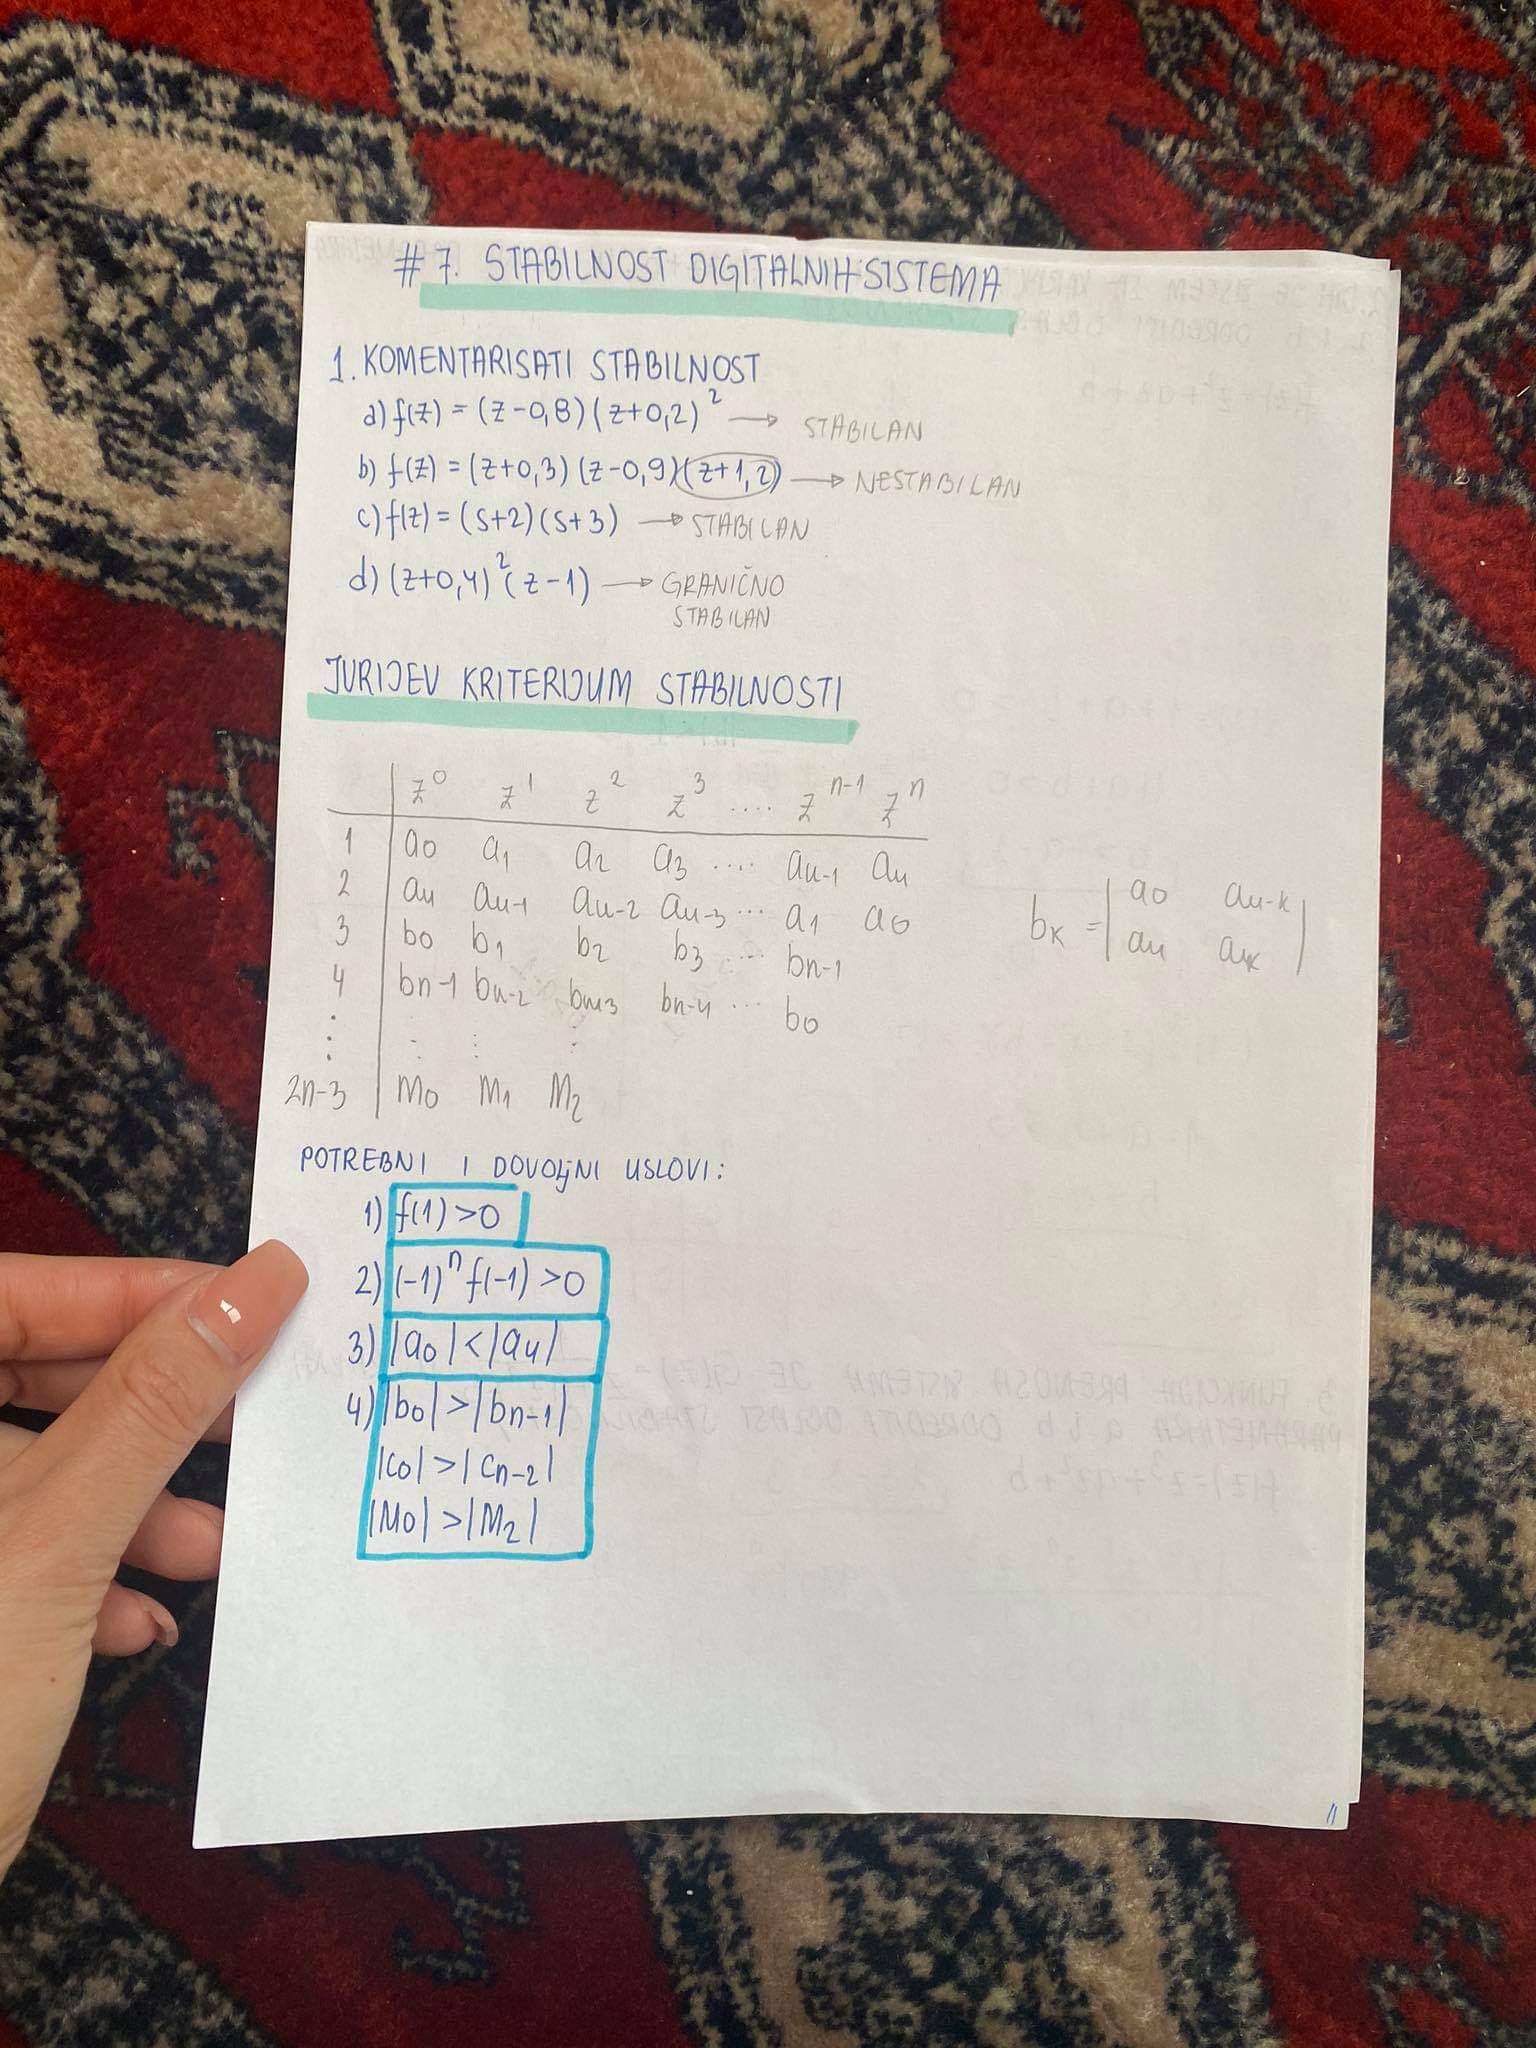 # 7. STABILNOST DIGITALNIH SISTEMA
1. KOMENTARISATI STABILNOST
a) f(z) = (z-0,8)(z+0,2)² → STABILAN
b) f(z) = (z+0,3)(z-0,9)(z+1,2) → NESTABILAN
c) f(z) = (s+2)(s+3) → STABILAN
d) (z+0,4)²(z-1) → GRANIČNO
STABILAN
JURIJEV KRITERIJUM STABILNOSTI
z⁰ z¹ z² z³ .... zⁿ⁻¹ zⁿ
1 a₀ a₁ a₂ a₃ .... aₙ₋₁ aₙ
2 aₙ aₙ₋₁ aₙ₋₂ aₙ₋₃ ... a₁ a₀
3 b₀ b₁ b₂ b₃ .... bₙ₋₁
4 bₙ₋₁ bₙ₋₂ bₙ₋₃ bₙ₋₄ ... b₀
⋮ ⋮ ⋮ ⋮
2n-3 M₀ M₁ M₂
bₖ = | a₀ aₙ₋ₖ |
| aₙ aₖ |
POTREBNI I DOVOLJNI USLOVI:
1) f(1) >0
2) (-1)ⁿ f(-1) >0
3) |a₀| < |aₙ|
4) |b₀| > |bₙ₋₁|
|c₀| > |cₙ₋₂|
|M₀| > |M₂|
11